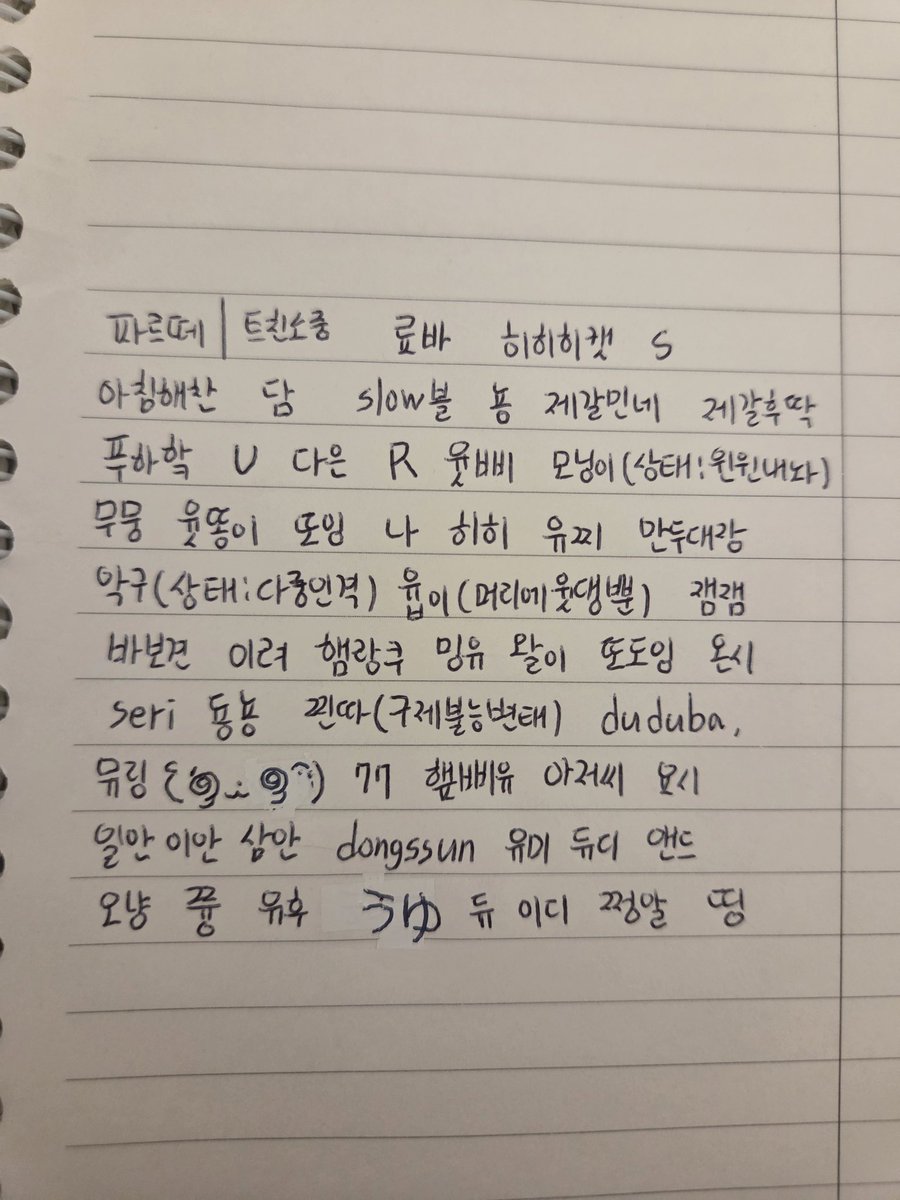 파르떼 | 트친소중 룝바 히히히캣 S
아침해찬 담 slow볼 뇽 제갈민네 제갈후딱
푸하학 U 다은 R 윳삐 모닝이(상태:윈윈내놔)
무뭉 윳똥이 또임 나 히히 유찌 만두대장
악구(상태:다중인격) 윱이(머리에윷댕뿐) 잼잼
바보견 이려 햄랑쿠 밍유 왈이 또도임 온시
seri 둉뇽 찐따(구제불능변태) duduba,
뮤링 77 햄삐유 아저씨 묘시
일안 이안 삼안 dongssun 유미 듀디 앤드
오냥 쯍 유후 うゆ 듀 이디 쩡알 띵